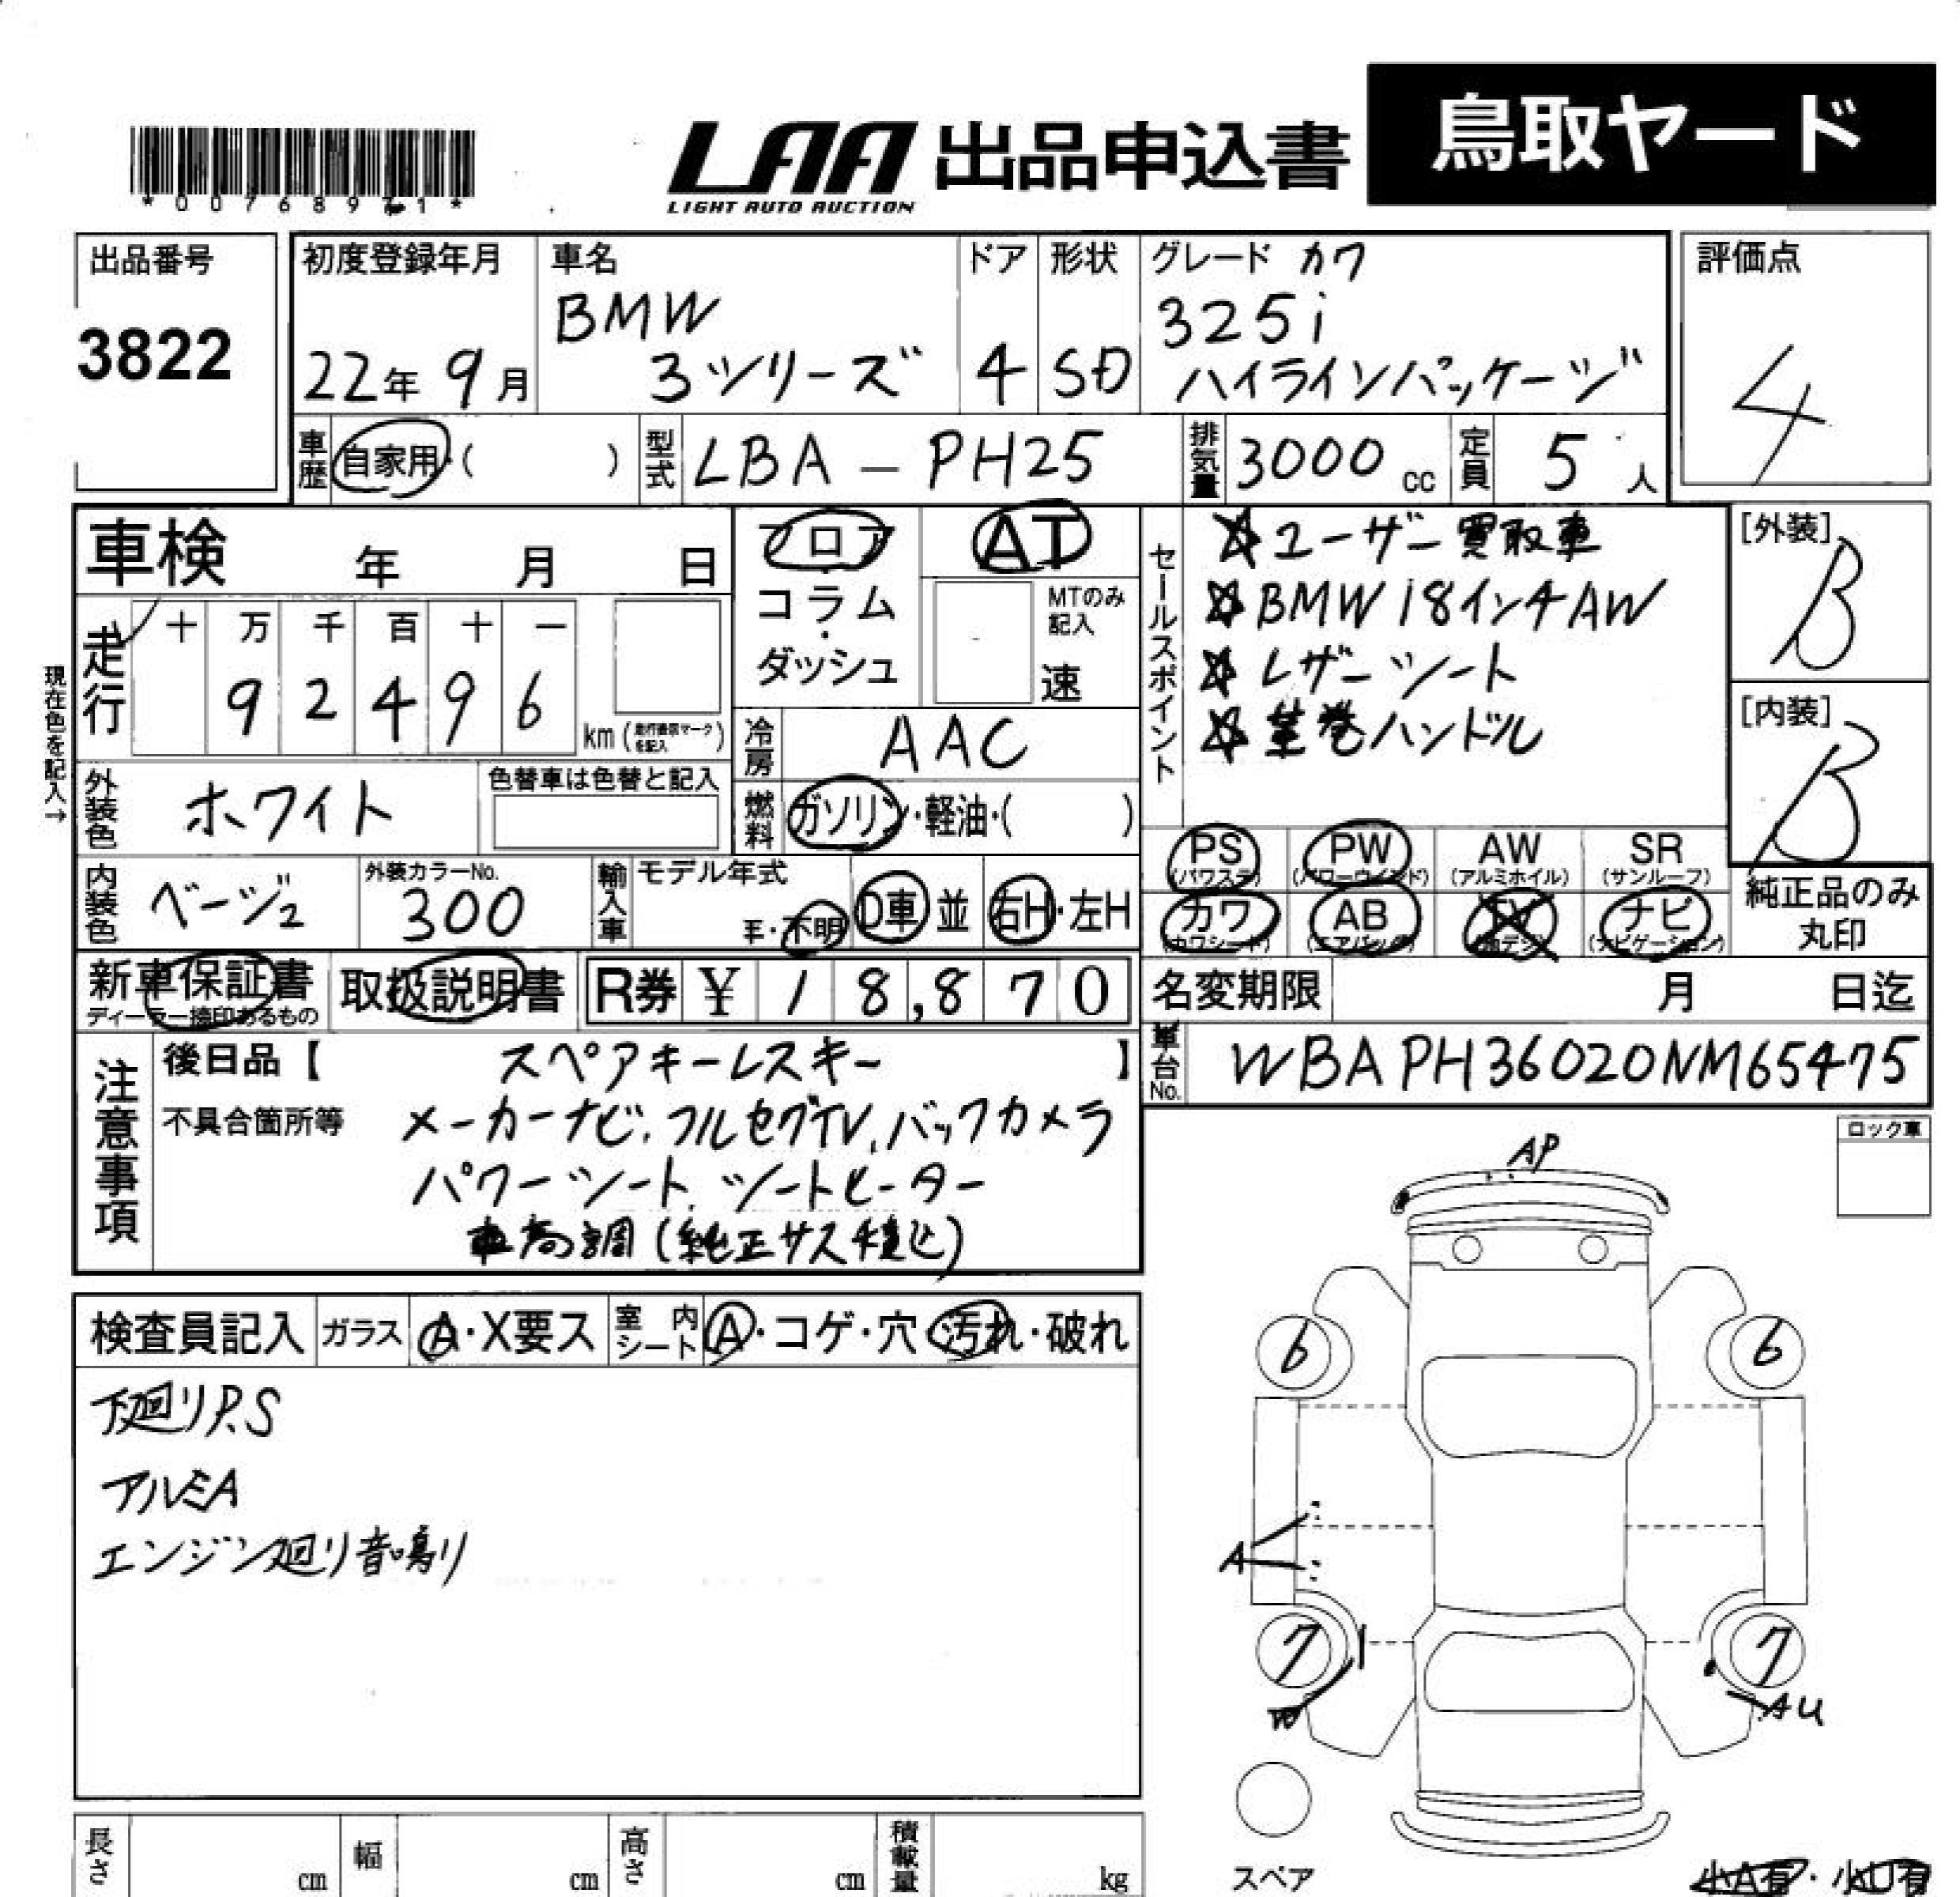 *00768971*
LAA 出品申込書
LIGHT AUTO AUCTION
鳥取ヤード
出品番号
3822
初度登録年月
22年 9月
車名
BMW
3シリーズ
ドア
4
形状
SD
グレード カワ
325i
ハイラインパッケージ
評価点
4
車歴
自家用・( )
型式
LBA - PH25
排気量
3000 cc
定員
5 人
車検 年 月 日
走行
十 万 千 百 十 一
9 2 4 9 6
km (走行表示マークを記入)
現在色を記入→
フロア
コラム
・
ダッシュ
AT
MTのみ
記入
速
セールスポイント
☆ユーザー買取車
☆BMW18インチAW
☆レザーシート
☆革巻ハンドル
[外装]
B
[内装]
B
冷房
AAC
外装色
ホワイト
色替車は色替と記入
燃料
ガソリン・軽油・( )
PS
(パワステ)
PW
(パワーウインド)
AW
(アルミホイル)
SR
(サンルーフ)
カワ
(カワシート)
AB
(エアバッグ)
TV
(地デジ)
ナビ
(ナビゲーション)
純正品のみ
丸印
内装色
ベージュ
外装カラーNo.
300
輸入車
モデル年式
年・不明
D車
並
右H・左H
新車保証書
ディーラー捺印あるもの
取扱説明書
R券 ¥ 18,870
名変期限 月 日迄
車台No.
WBAPH36020NM65475
注意事項
後日品【 スペアキーレスキー 】
不具合箇所等 メーカーナビ、フルセグTV、バックカメラ
パワーシート、シートヒーター
車高調(純正サス積込)
ロック車
AP
検査員記入
ガラス
A・X要ス
室内
シート
A・コゲ・穴・汚れ・破れ
下廻りP.S
アルミA
エンジン廻り音鳴り
6
6
A
7
7
W
AU
スペア
小A有・小U有
長さ cm
幅 cm
高さ cm
積載量 kg